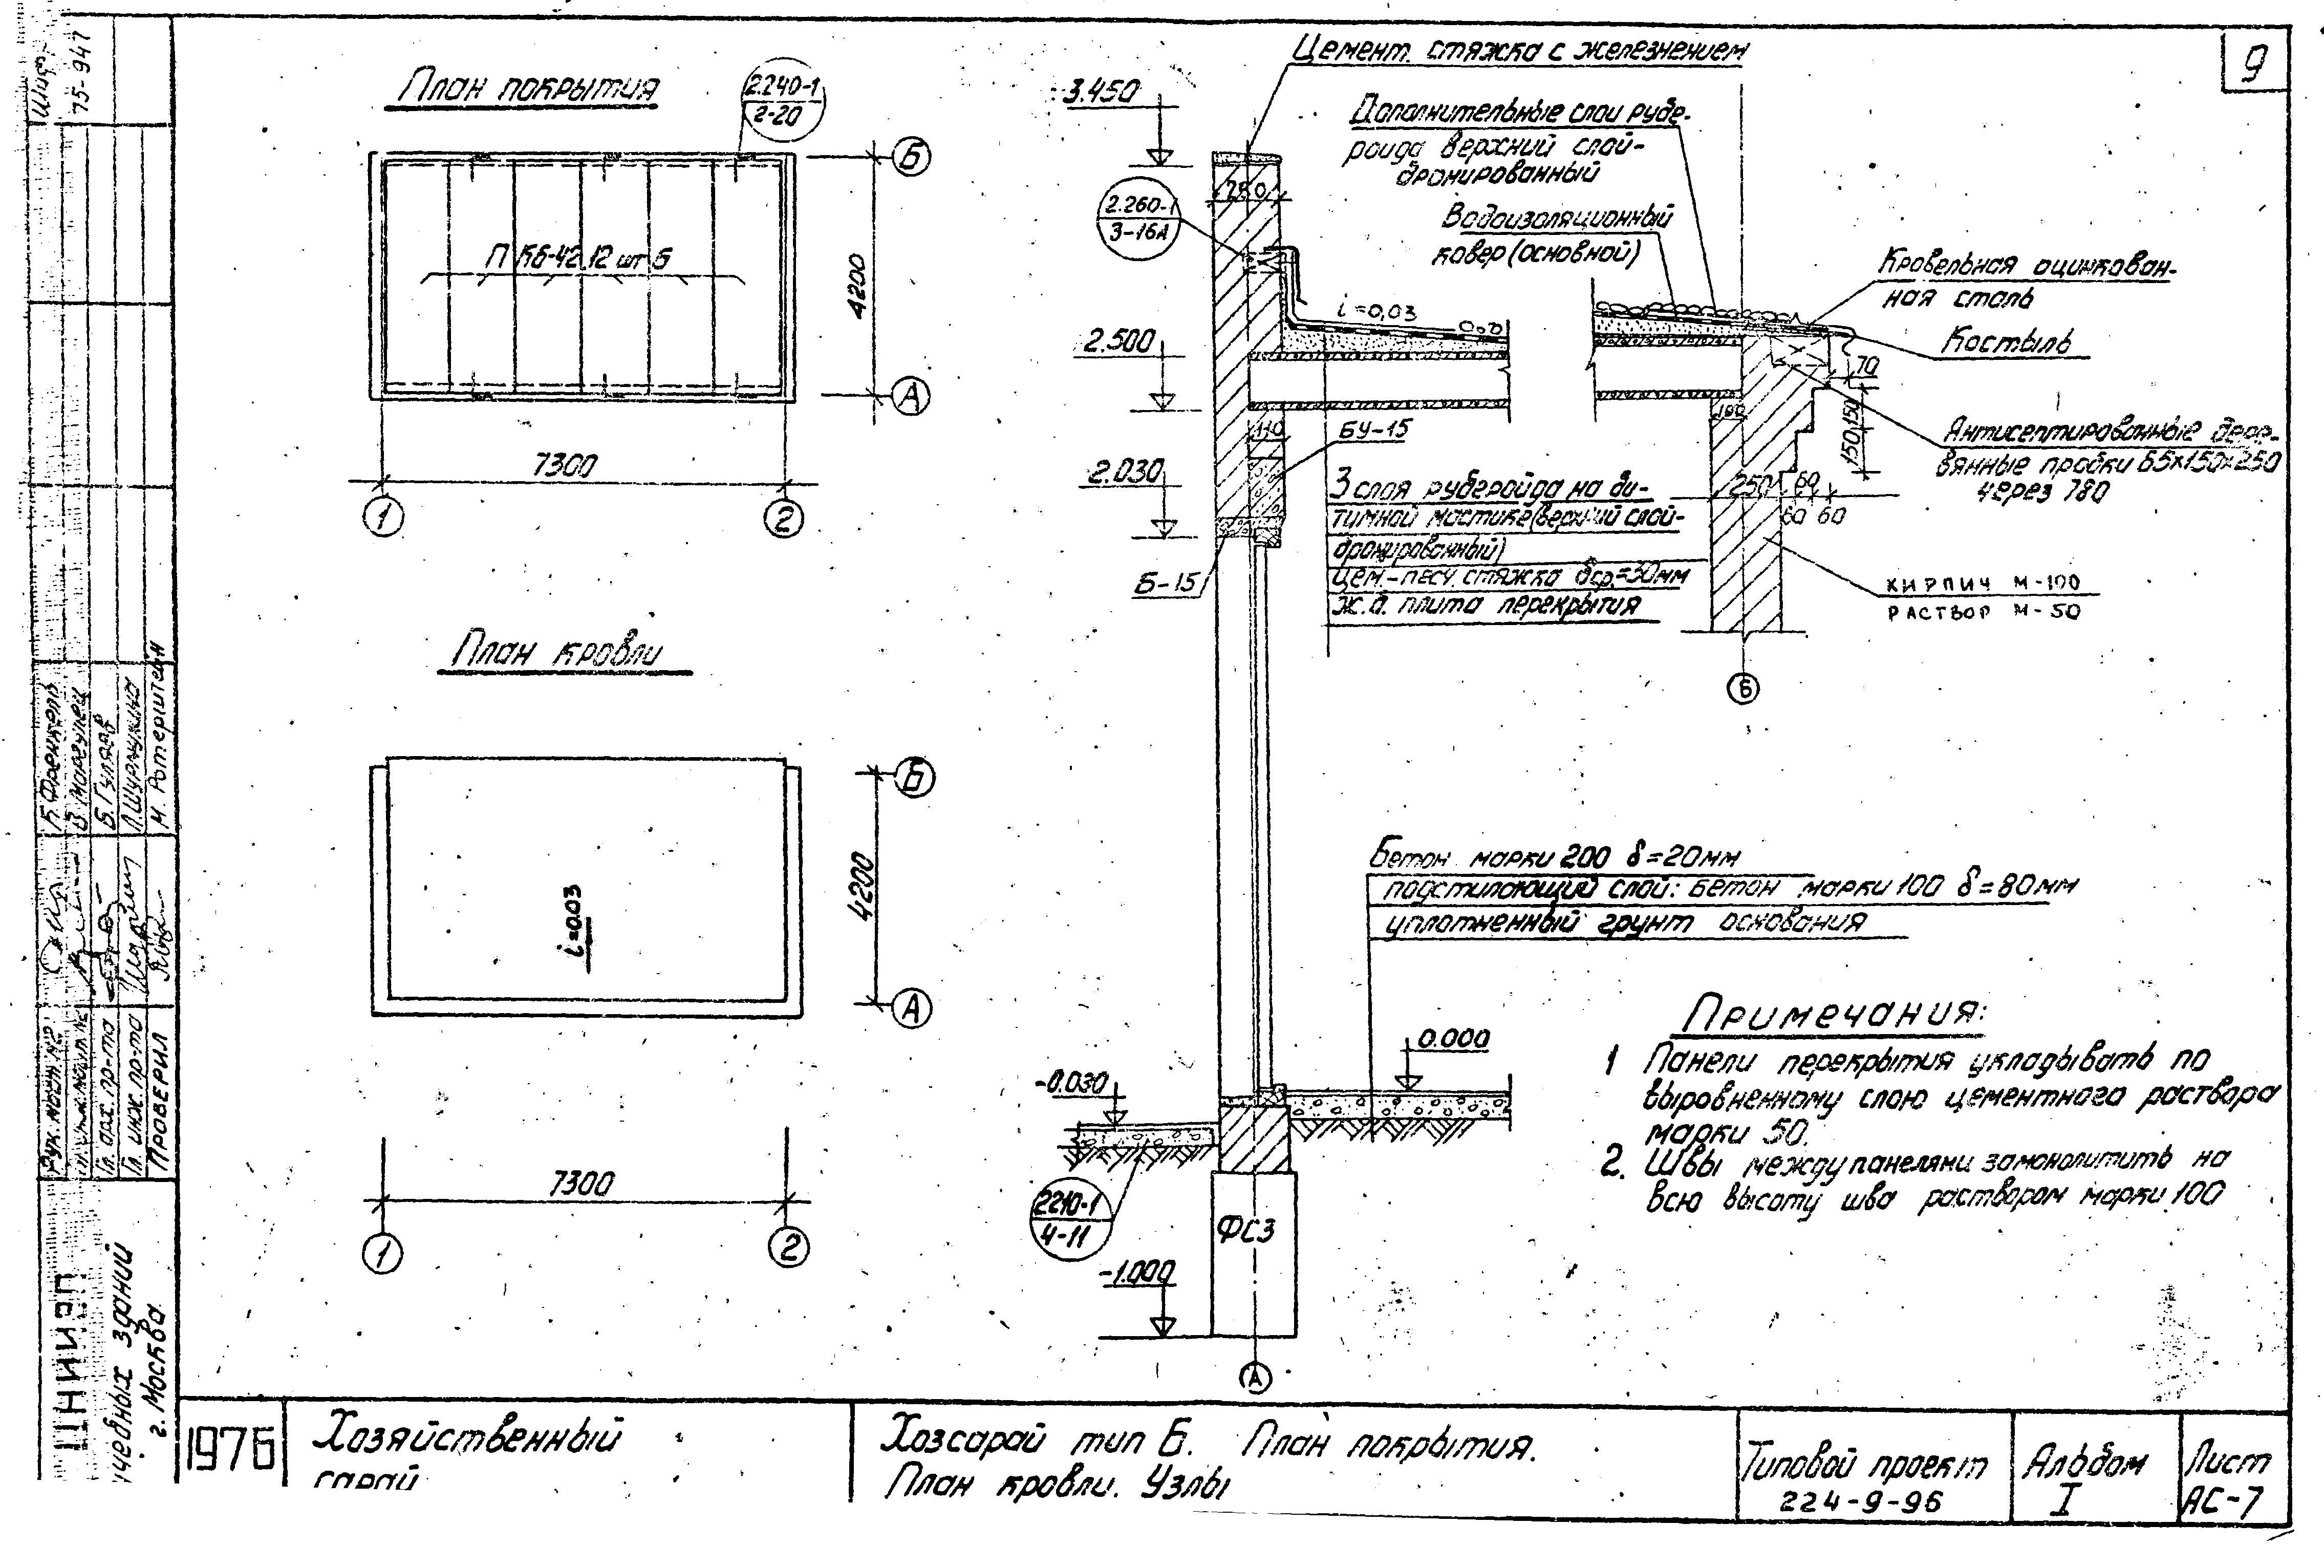 9
75-947
План покрытия
2.240-1
2-20
Б
П К6-42.12 шт 6
4200
А
7300
1
2
План кровли
Б
i=0.03
4200
А
7300
1
2
Цемент. стяжка с железнением
3.450
Дополнительные слои рубе-
роида верхний слой-
бронированный
250
2.260-1
3-16А
Водоизоляционный
ковер (основной)
Кровельная оцинкован-
ная сталь
Костыль
i=0,03
2.500
70
110
БУ-15
180
150 150
Антисептированные дере-
вянные пробки 65х150х250
через 780
2.030
3 слоя рубероида на би-
тумной мастике (верхний слой-
бронированный)
цем.-песч. стяжка бср.=30мм
ж.б. плита перекрытия
250
60
60 60
Б-15
КИРПИЧ М-100
РАСТВОР М-50
Б
Бетон марки 200 δ=20мм
подстилающий слой: бетон марки 100 δ=80мм
уплотненный грунт основания
0.000
-0.030
2210-1
4-11
ФС3
-1.000
А
Примечания:
1 Панели перекрытия укладывать по
выровненному слою цементного раствора
марки 50.
2. Швы между панелями замонолитить на
всю высоту шва раствором марки 100
Б. Френкель
Б. Гуляев
М. Ротерштейн
Гл. арх. пр-та
Гл. инж. пр-та
Проверил
ЦНИИЭП
г. Москва
1976
Хозяйственный
сарай
Хозсарай тип Б. План покрытия.
План кровли. Узлы
Типовой проект
224-9-96
Альбом
I
Лист
АС-7